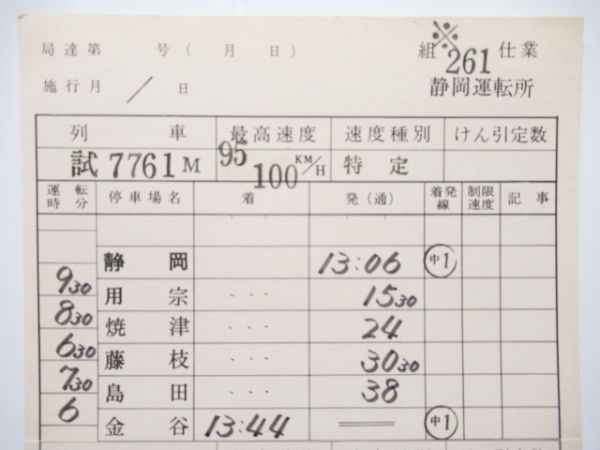 局達第 号( 月 日) 組 ※261 仕業
施行月 / 日 静岡運転所
列 車 最高速度 速度種別 けん引定数
試 7761M 95 100 KM/H 特 定
運転時分 停車場名 着 発(通) 着発線 制限速度 記 事
静 岡 13:06 中1
9 30 用 宗 ・・・ 15 30
8 30 焼 津 ・・・ 24
6 30 藤 枝 ・・・ 30 30
7 30 島 田 ・・・ 38
6 金 谷 13:44 ══ 中1